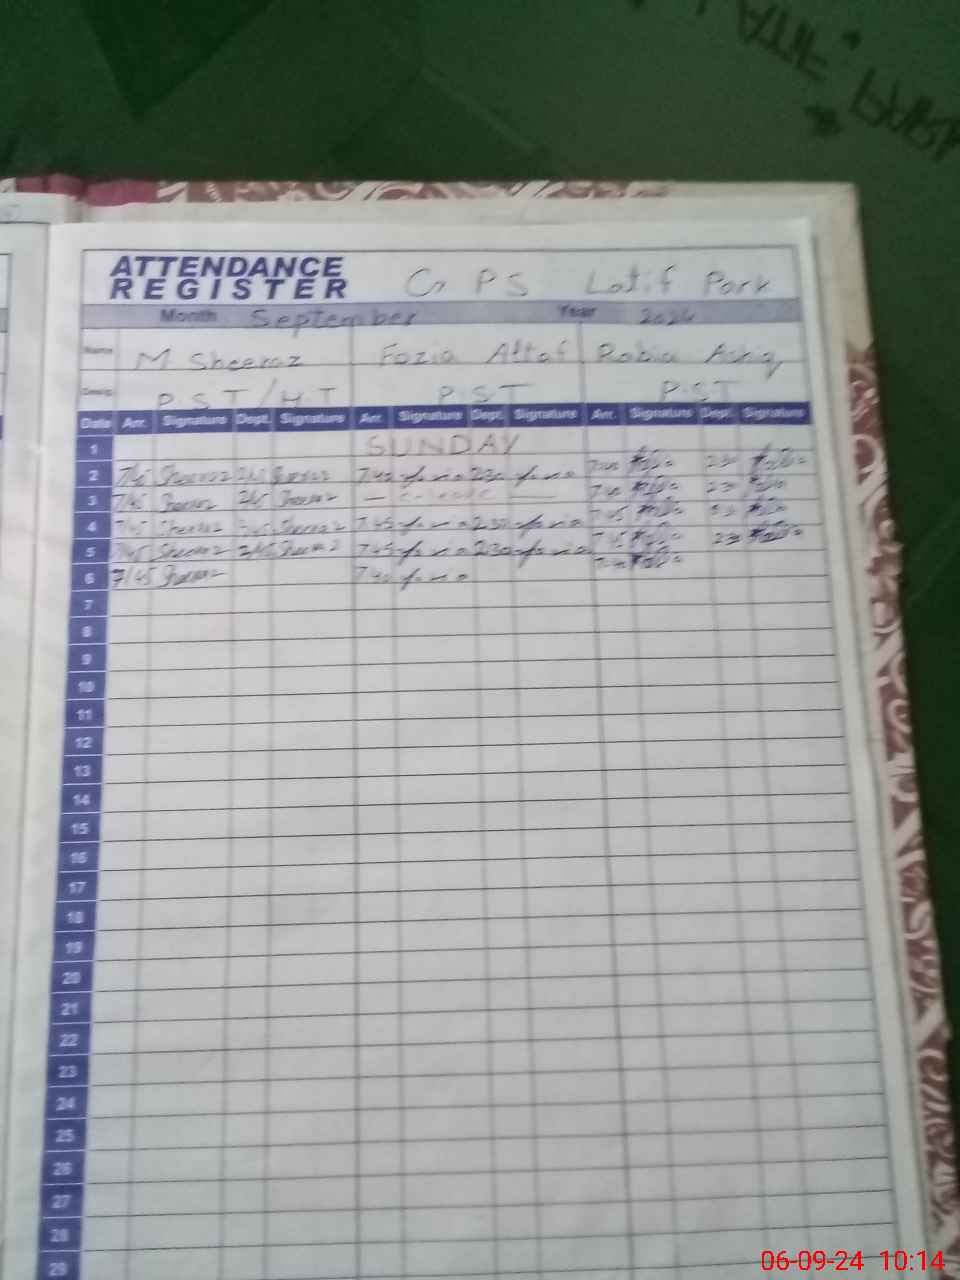 ATTENDANCE
REGISTER G P S Latif Park
Month September Year 2024
Name M Sheeraz Fozia Altaf Rabia Ashiq
Desig. P.S.T/H.T P.S.T P.S.T
Date Arr. Signature Dept. Signature Arr. Signature Dept. Signature Arr. Signature Dept. Signature
1 SUNDAY
2 7/45 Sheeraz 2/45 Sheeraz 7.40 fozia 2.30 fozia 7:40 2:30
3 7/45 Sheeraz 2/45 Sheeraz — C-leave — 7:40 2:30
4 7/45 Sheeraz 2/45 Sheeraz 7.45 fozia 2.30 fozia 7:45
5 7/45 Sheeraz 2/45 Sheeraz 7.45 fozia 2.30 fozia 7:45 2:30
6 7/45 Sheeraz 7.40 fozia 7:40
7
8
9
10
11
12
13
14
15
16
17
18
19
20
21
22
23
24
25
26
27
28
29
06-09-24 10:14